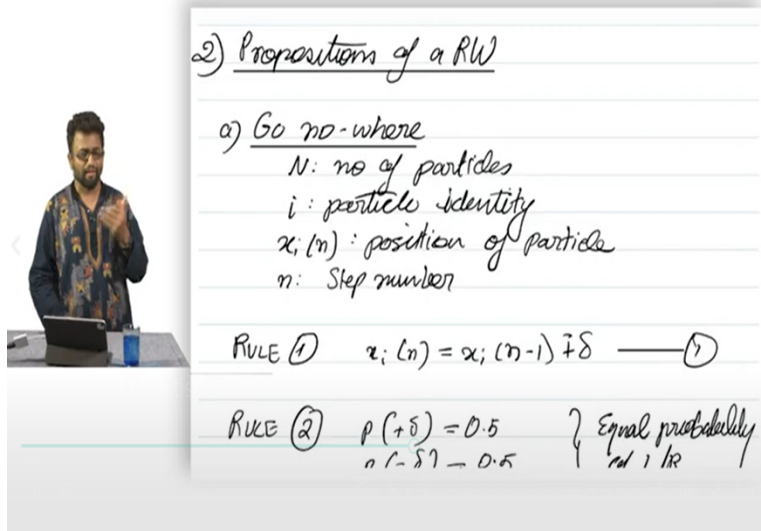 2) Propositions of a RW
a) Go no-where
N: no of particles
i: particle identity
xᵢ(n): position of particle
n: Step number
RULE ① xᵢ(n) = xᵢ(n-1) ∓δ —— ①
RULE ② p(+δ) = 0.5 } Equal probability
p(-δ) = 0.5